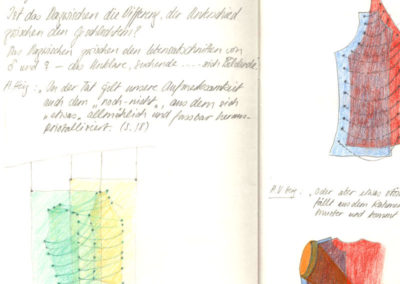 Ist das Dazwischen die Differenz, der Unterschied
zwischen den Geschlechtern?
Das Dazwischen zwischen den Lebensabschnitten von
♂ und ♀ – das Unklare, Suchende ..... sich
A. Heig: „In der Tat gilt unsere Aufmerksamkeit
auch dem „noch-nicht", aus dem sich
„etwas" allmählich und fassbar heraus-
kristallisiert. (S. 18)
„oder aber etwas
fällt aus dem Rahmen
hinunter und kommt